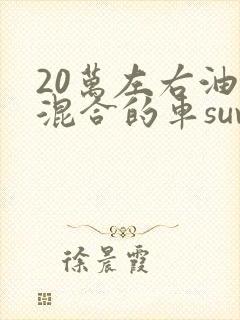 20萬左右油
混合的車su
徐晨霞